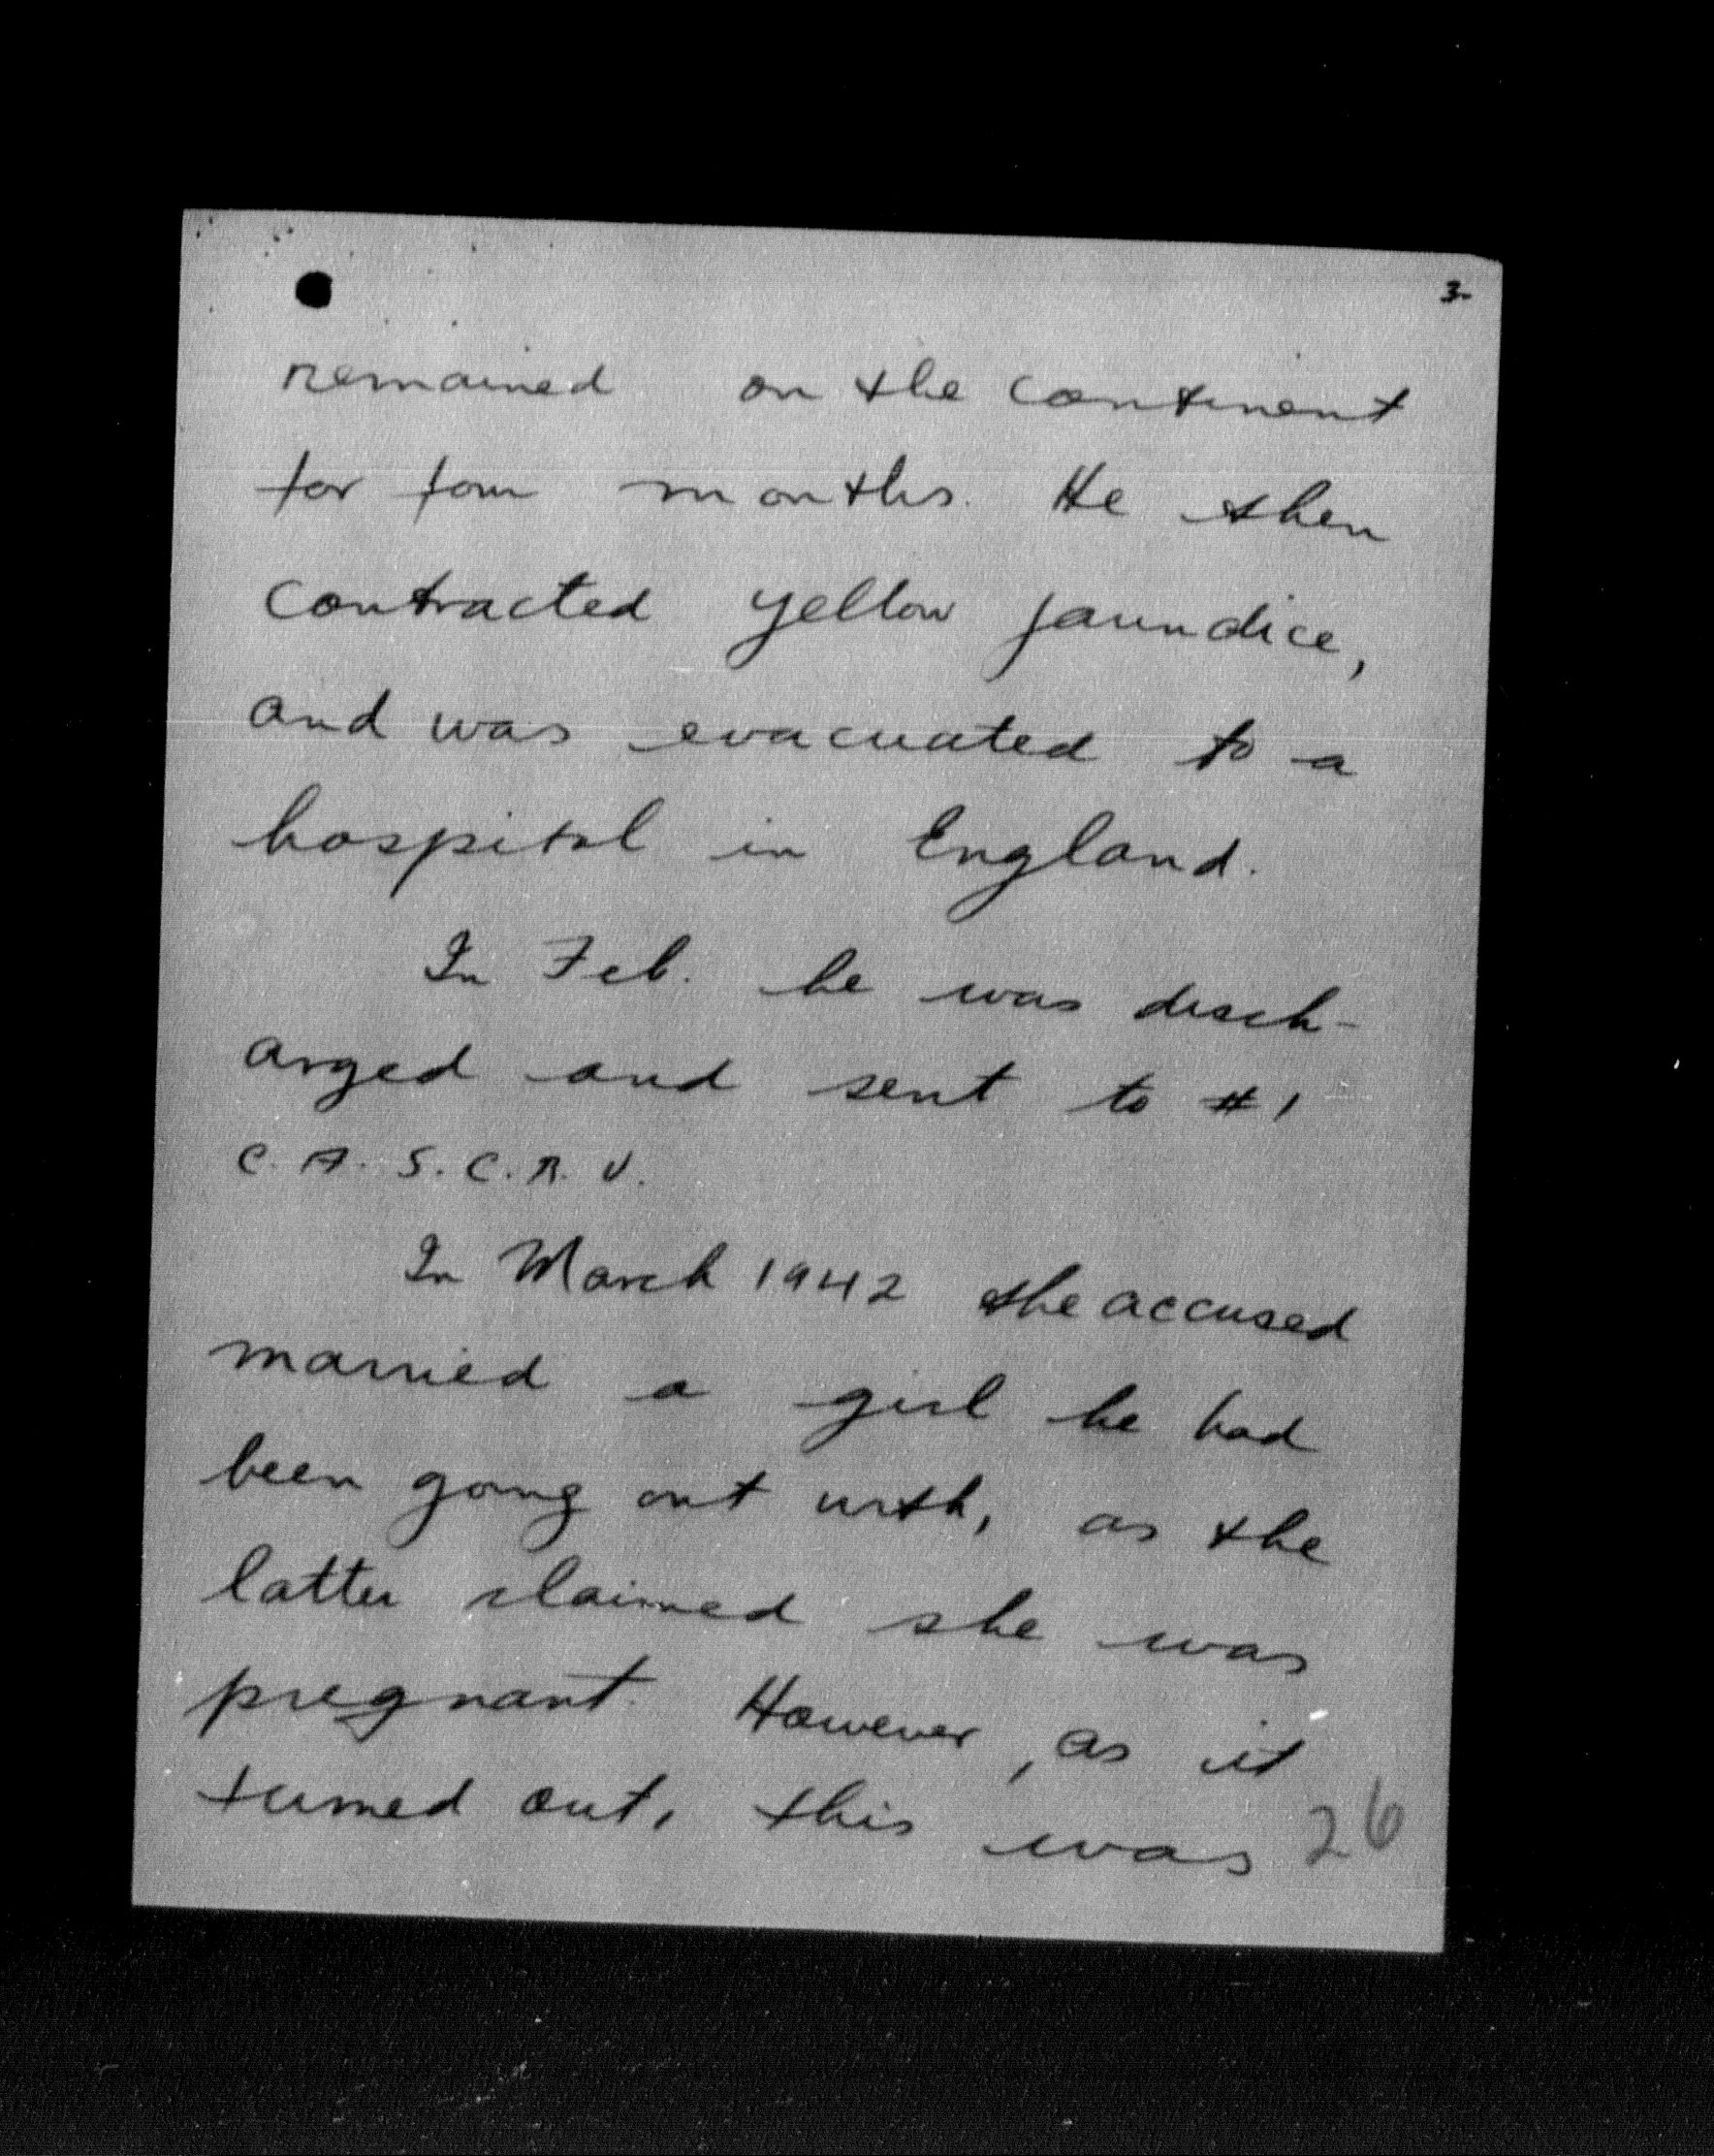 3-
remained on the continent
for four months. He then
contracted yellow jaundice,
and was evacuated to a
hospital in England.
In Feb. he was disch-
arged and sent to #1
C. A. S. C. R. U.
In March 1942 the accused
married a girl he had
been going out with, as the
latter claimed she was
pregnant. However, as it
turned out, this was
26